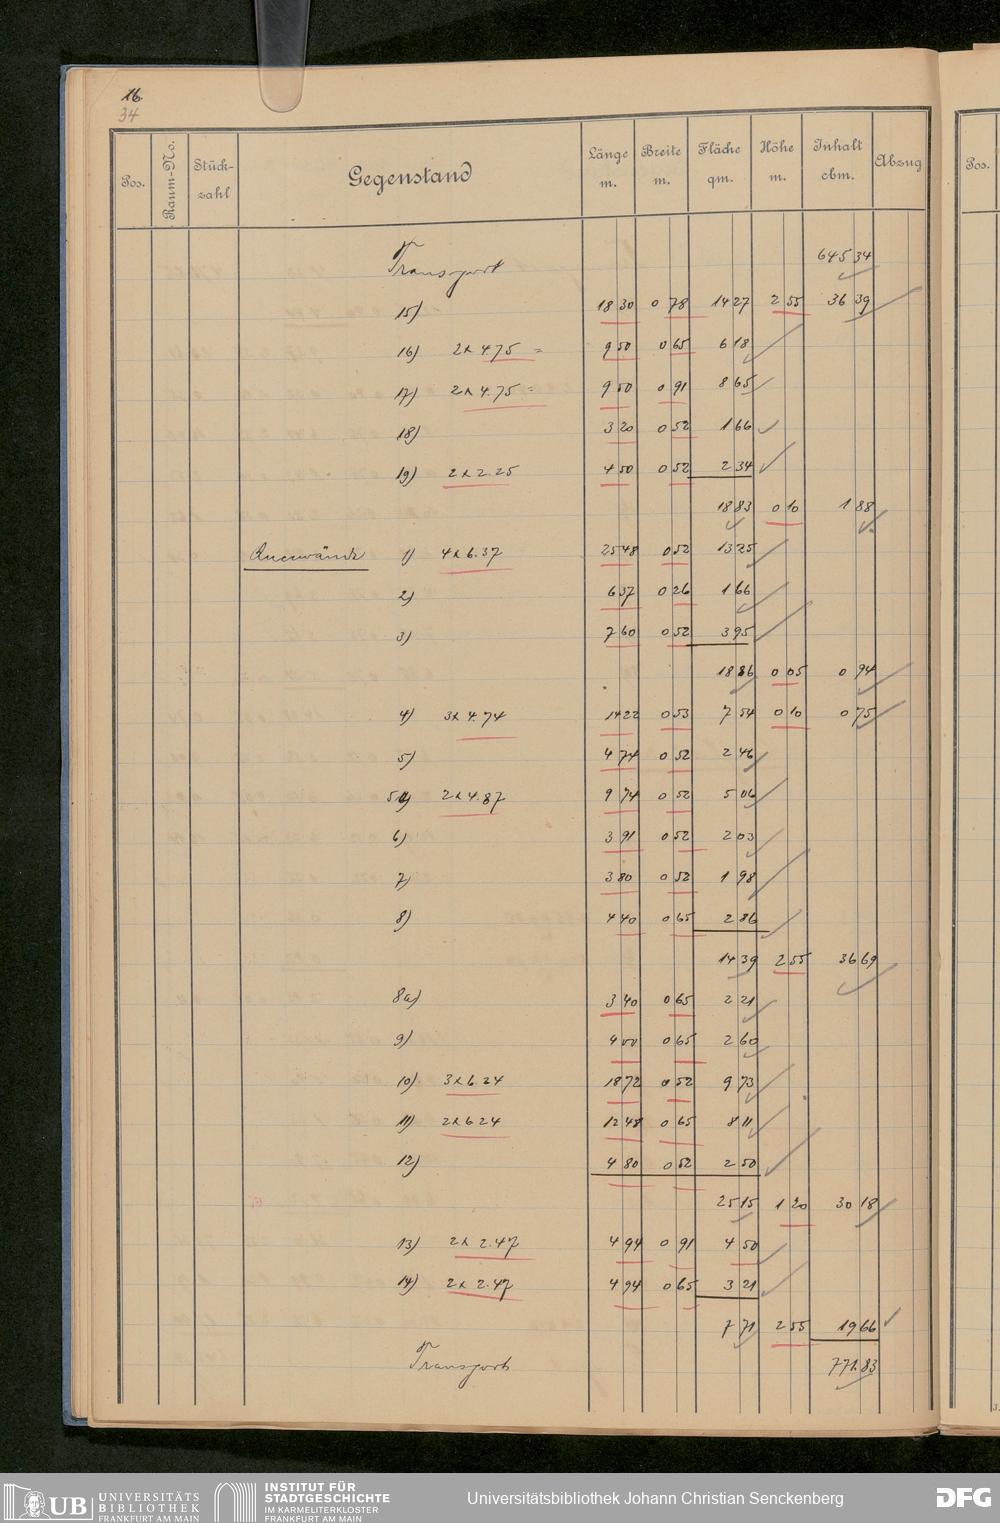 16.
34
Pos.
Raum-No.
Stück-zahl
Gegenstand
Länge m.
Breite m.
Fläche qm.
Höhe m.
Inhalt cbm.
Abzug
Pos.
Transport 645 34
15) 18 30 0 78 14 27 2 55 36 39
16) 2 x 4.75 = 9 50 0 65 6 18
17) 2 x 4.75 = 9 50 0 91 8 65
18) 3 20 0 52 1 66
19) 2 x 2.25 4 50 0 52 2 34
18 83 0 10 1 88
Querwände 1) 4 x 6.37 25 48 0 52 13 25
2) 6 37 0 26 1 66
3) 7 60 0 52 3 95
18 86 0 05 0 94
4) 3 x 4.74 14 22 0 53 7 54 0 10 0 75
5) 4 74 0 52 2 46
5a) 2 x 4.87 9 74 0 52 5 06
6) 3 91 0 52 2 03
7) 3 80 0 52 1 98
8) 4 40 0 65 2 86
14 39 2 55 36 69
8a) 3 40 0 65 2 21
9) 4 00 0 65 2 60
10) 3 x 6.24 18 72 0 52 9 73
11) 2 x 6 24 12 48 0 65 8 11
12) 4 80 0 52 2 50
25 15 1 20 30 18
13) 2 x 2.47 4 94 0 91 4 50
14) 2 x 2.47 4 94 0 65 3 21
7 71 2 55 19 66
Transport 771.83
UB UNIVERSITÄTS BIBLIOTHEK FRANKFURT AM MAIN
INSTITUT FÜR STADTGESCHICHTE IM KARMELITERKLOSTER FRANKFURT AM MAIN
Universitätsbibliothek Johann Christian Senckenberg
DFG